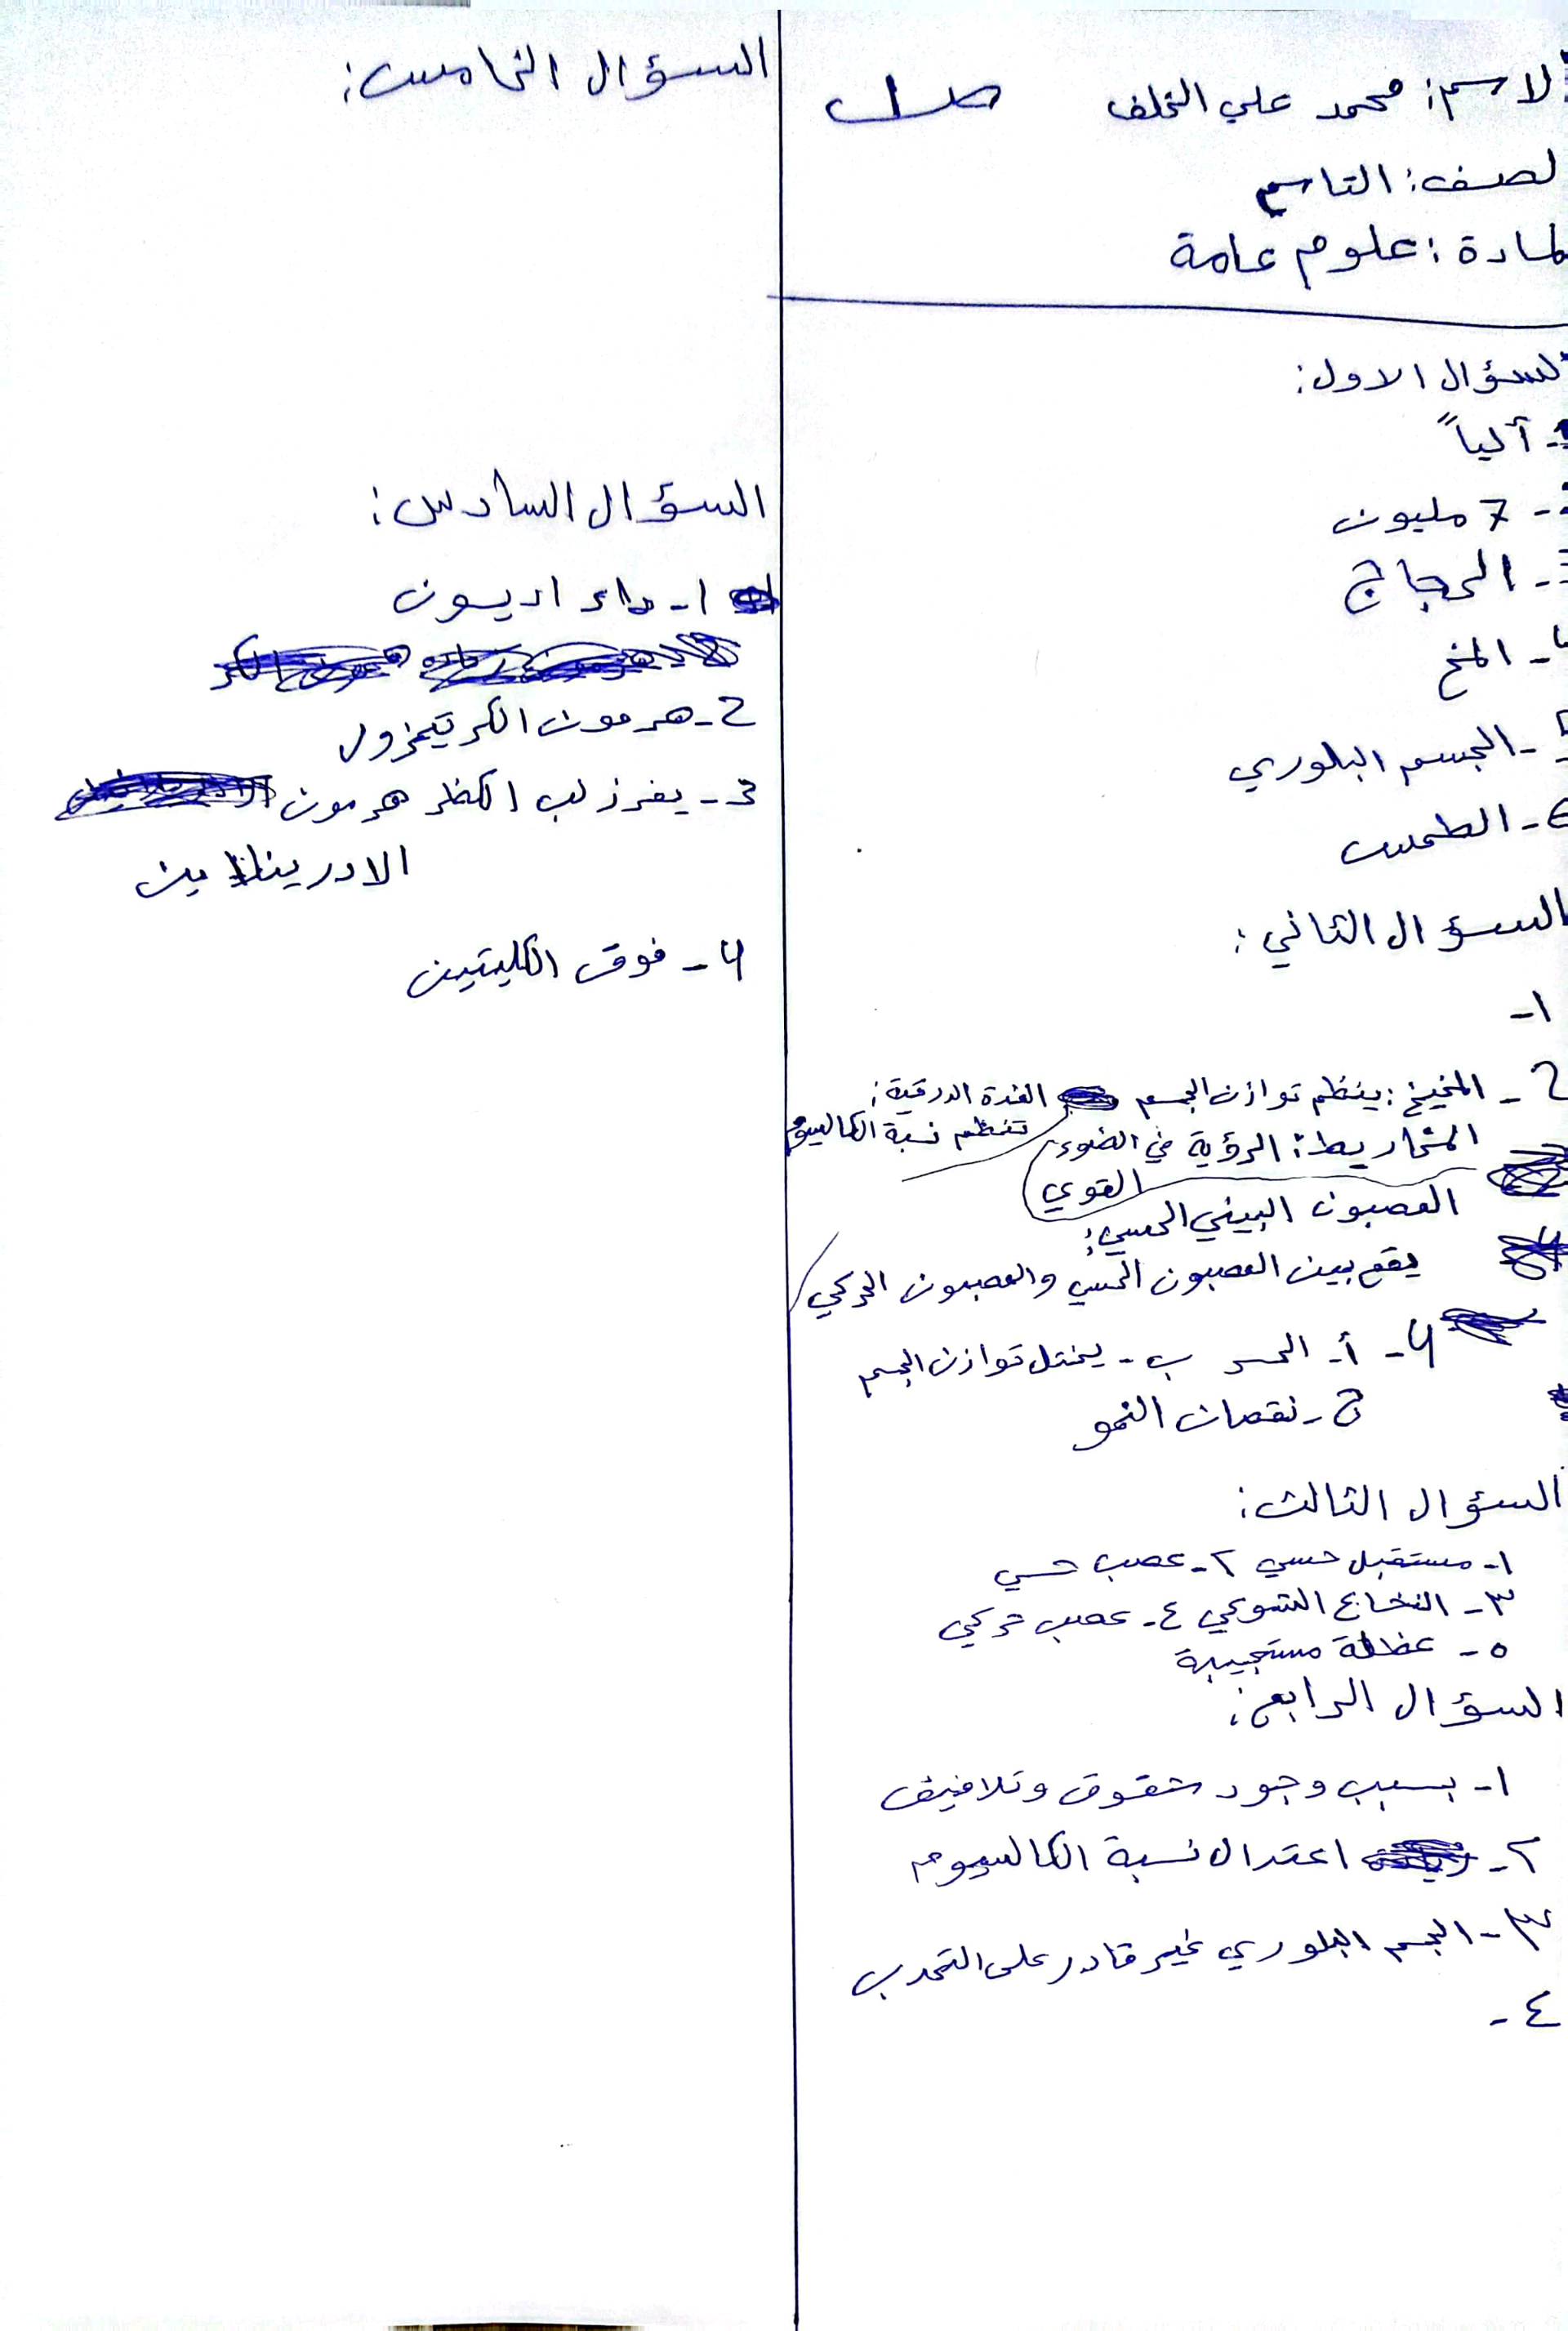 الاسم: محمد علي الخلف
لصف: التاسع
لمادة: علوم عامة
لسؤال الاول:
- آلياً
- 7 مليون
- الزجاج
4- المخ
5- الجسم البلوري
6- الطمس
السؤال الثاني:
1-
2- المخيخ: ينظم توازن الجسم الغدة الدرقية:
تنظم نسبة الكالسيوم
المخاريط: الرؤية في الضوء
القوي
العصبون البيني الحسي:
يقع بين العصبون الحسي والعصبون الحركي
4- أ- الحسر ب- يختل توازن الجسم
ج- نقصان النمو
السؤال الثالث:
١- مستقبل حسي ٢- عصب حسي
٣- النخاع الشوكي ٤- عصب حركي
٥- عضلة مستجيبة
السؤال الرابع:
١- بسبب وجود شقوق وتلافيف
٢- اعتدال نسبة الكالسيوم
٣- الجسم البلوري غير قادر على التحدب
٤-
السؤال الخامس:
السؤال السادس:
1- داء اديسون
2- هرمون الكرتيزول
3- يفرز لب الكظر هرمون
الادرينالين
4- فوق الكليتين